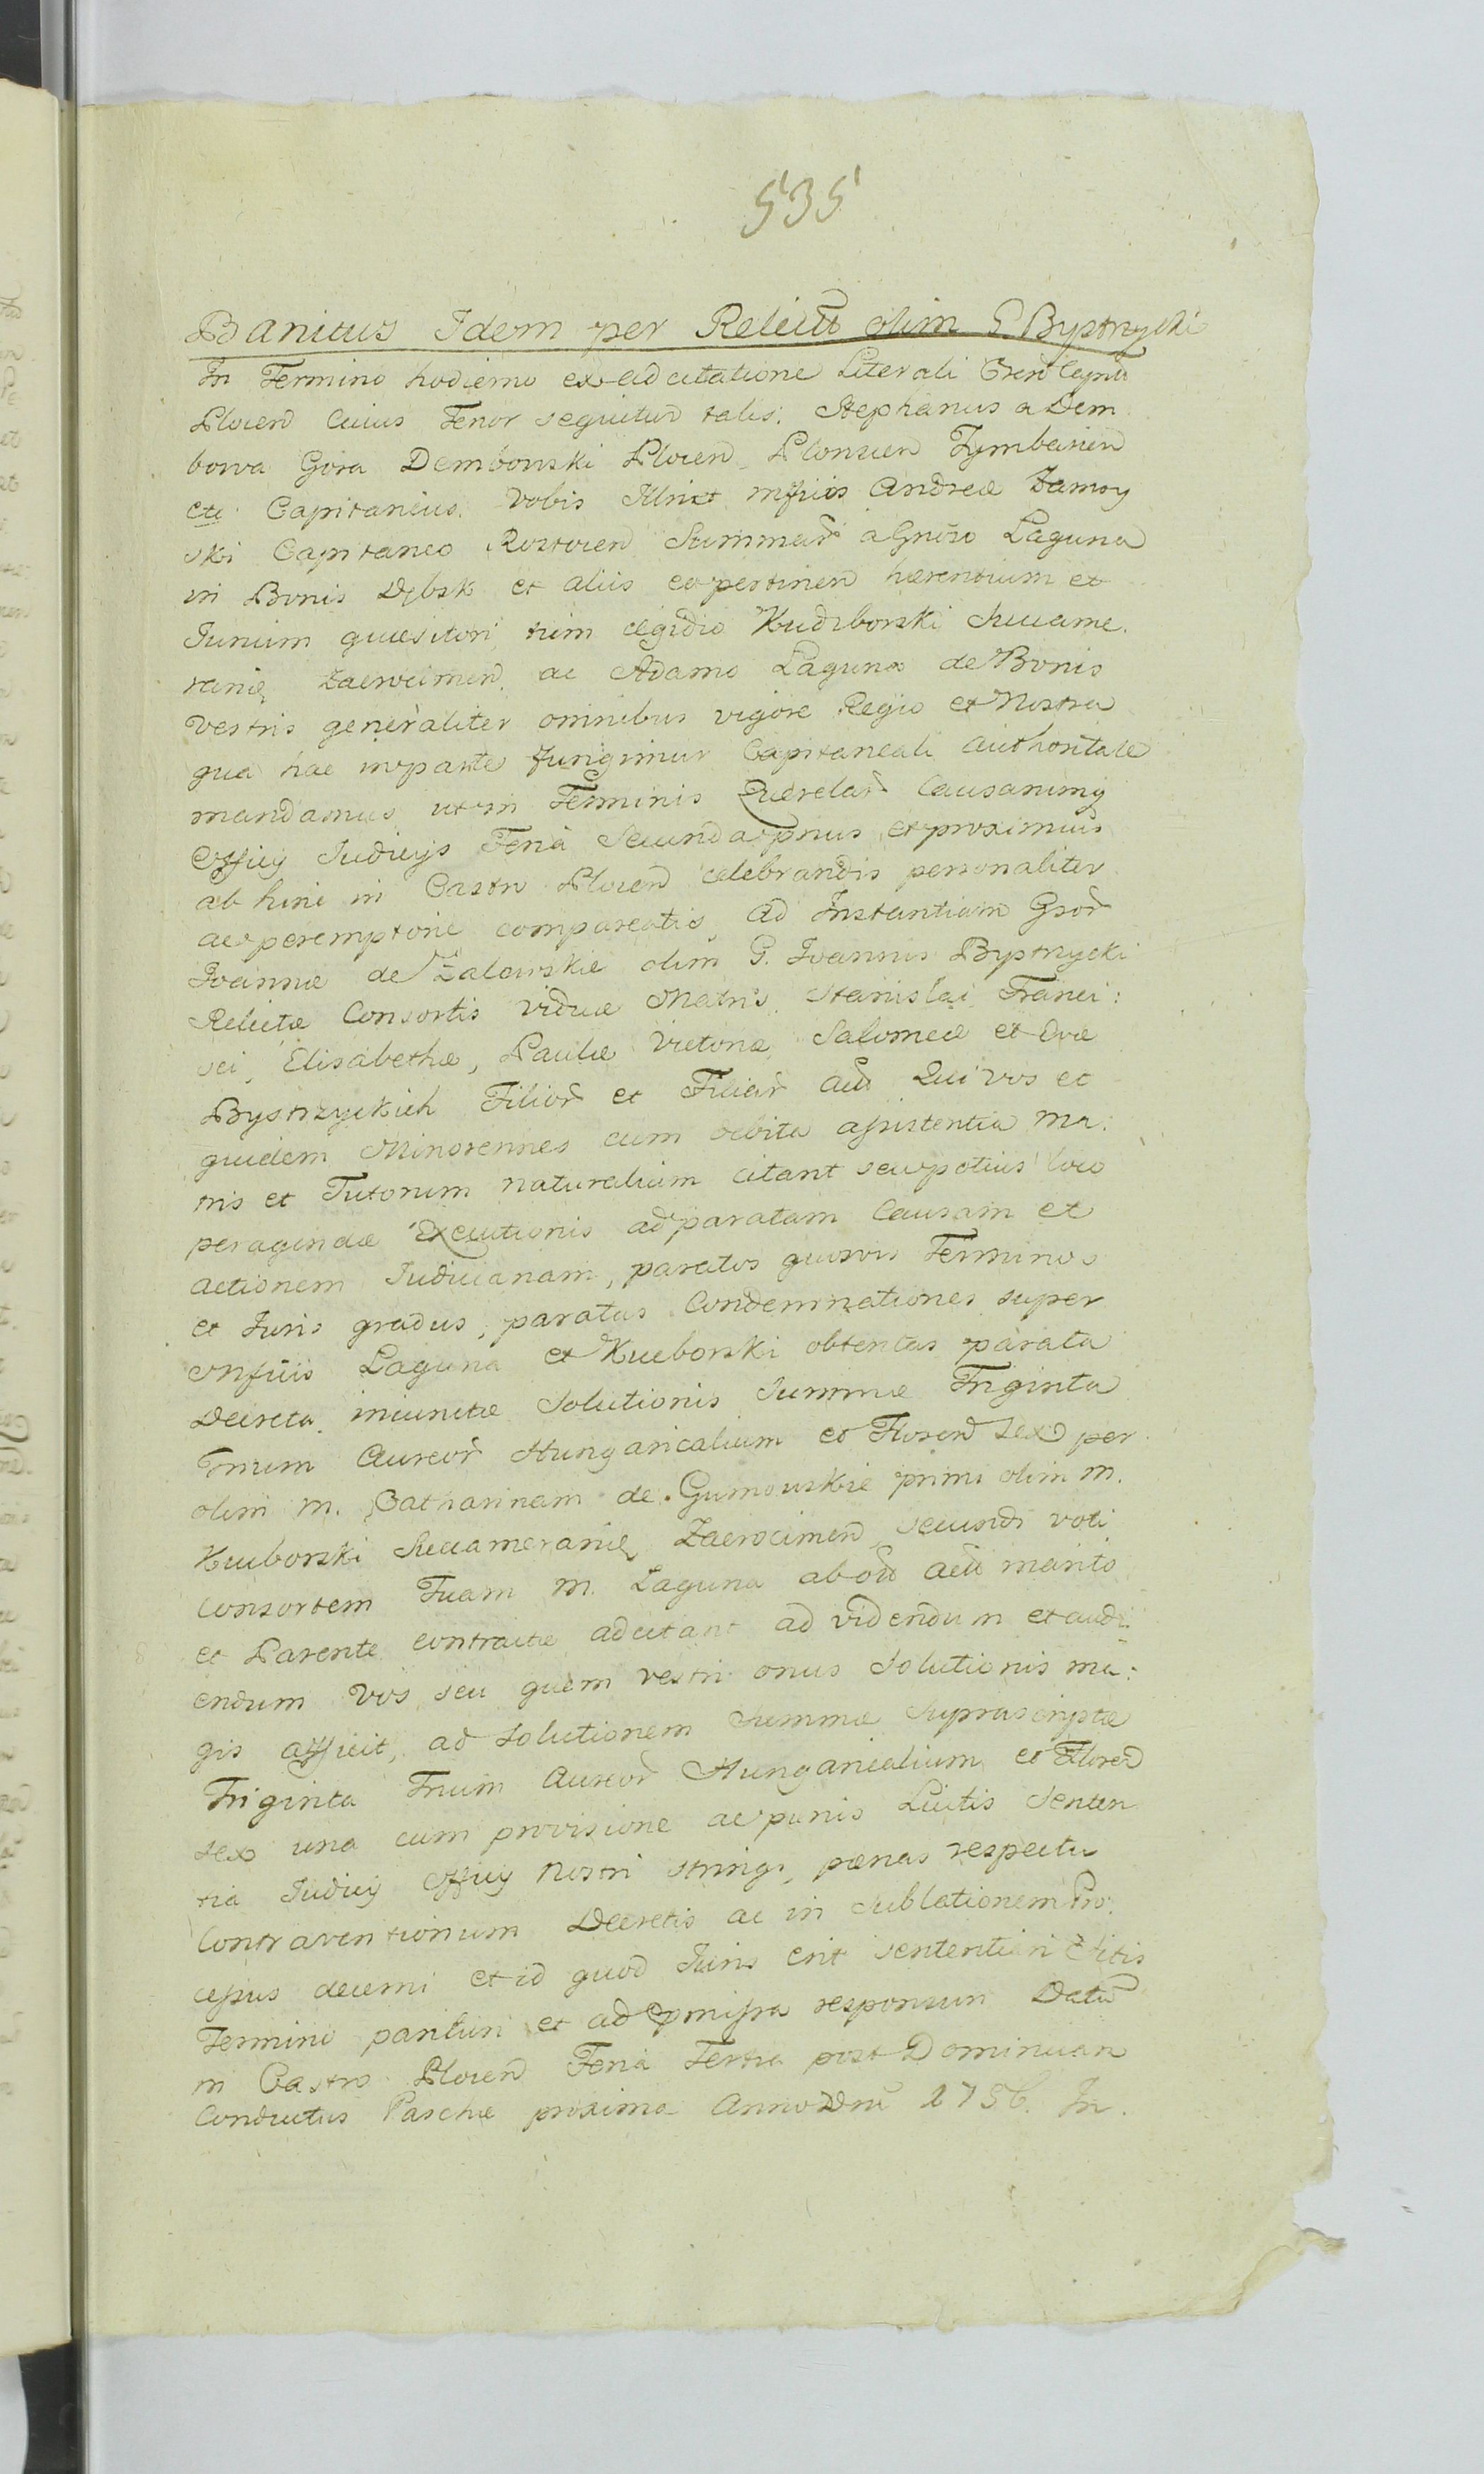 535
Banitus Idem per Relictā olim G. Bystrzycki
In Termino hodierno ex Adcitatione Literali
Plocen Cuius Tenor sequitur talis: Stephanus a Dem
bowa Gora Dembowski Plocen Plonscen Tymbarien
etc Capitaneus. Vobis Andreæ Zamoy
ski Capitaneo Rostocen Summar a Gnrso Laguna
in Bonis Dębsk et aliis eo pertinen hærentium et
Iurium quæsitori, tum Ægidio Kucborski Succame.
rario Zacrocimen. ac Adamo Laguna de Bonis
vestris generaliter omnibus vigore Regio et Nostra
qua hac in parte fungimur Capitaneali Authoritate
mandamus ut in Terminis Querelar Causarumq
Officij Iudicijs Feria Secunda prius et proximius
ab hinc in Castro Plocen celebrandis personaliter
ac peremptorie compareatis, ad Instantiam Gsor
Ioannæ de Zalewskie olim G. Ioannis Bystrzycki
Relictæ Consortis viduæ Matris, Stanislai, Franci:
sci, Elisabethæ, Paulæ Victoriæ Salomeæ et Evæ
Bystrzyckich Filior et Filiar Qui vos et
quidem Minorennes cum debita assistentia Ma:
tris et Tutorum naturalium citant seu potius loco
peragendæ Executionis ad paratam Causam et
actionem Iudiciariam, paratos quosvis Terminos
et Iuris gradus, paratas Condemnationes super
Mnfciis Laguna et Kucborski obtentas parata
Decreta, iniunctæ Solutionis Summæ Triginta
Trium Aureor Hungaricalium et Floren sex per
olim M. Catharinam de Gumowskie primi olim M.
Kucborski Succamerarij Zacrocimen, secundi voti
Consortem Tuam M. Laguna ab marito
et Parente contractæ adcitant ad videndum et audi:
endum vos seu quem vestri onus Solutionis ma:
gis afficit, ad Solutionem Summæ Suprascriptæ
Triginta Trium Aureor Hungaricalium, et Floren
sex una cum provisione ac pænis Luitis Senten
tia Iudicij Officij Nostri stringi, pœnas respectu
Contraventionum Decretis ac in Sublationem Pro:
cessus decerni et id quod Iuris erit sententiari Sitis
Termino parituri et ad præmissa responsuri Datū
in Castro Plocen Feria Tertia post Dominicam
Conductus Paschæ proxima Anno Dni 1756. In.